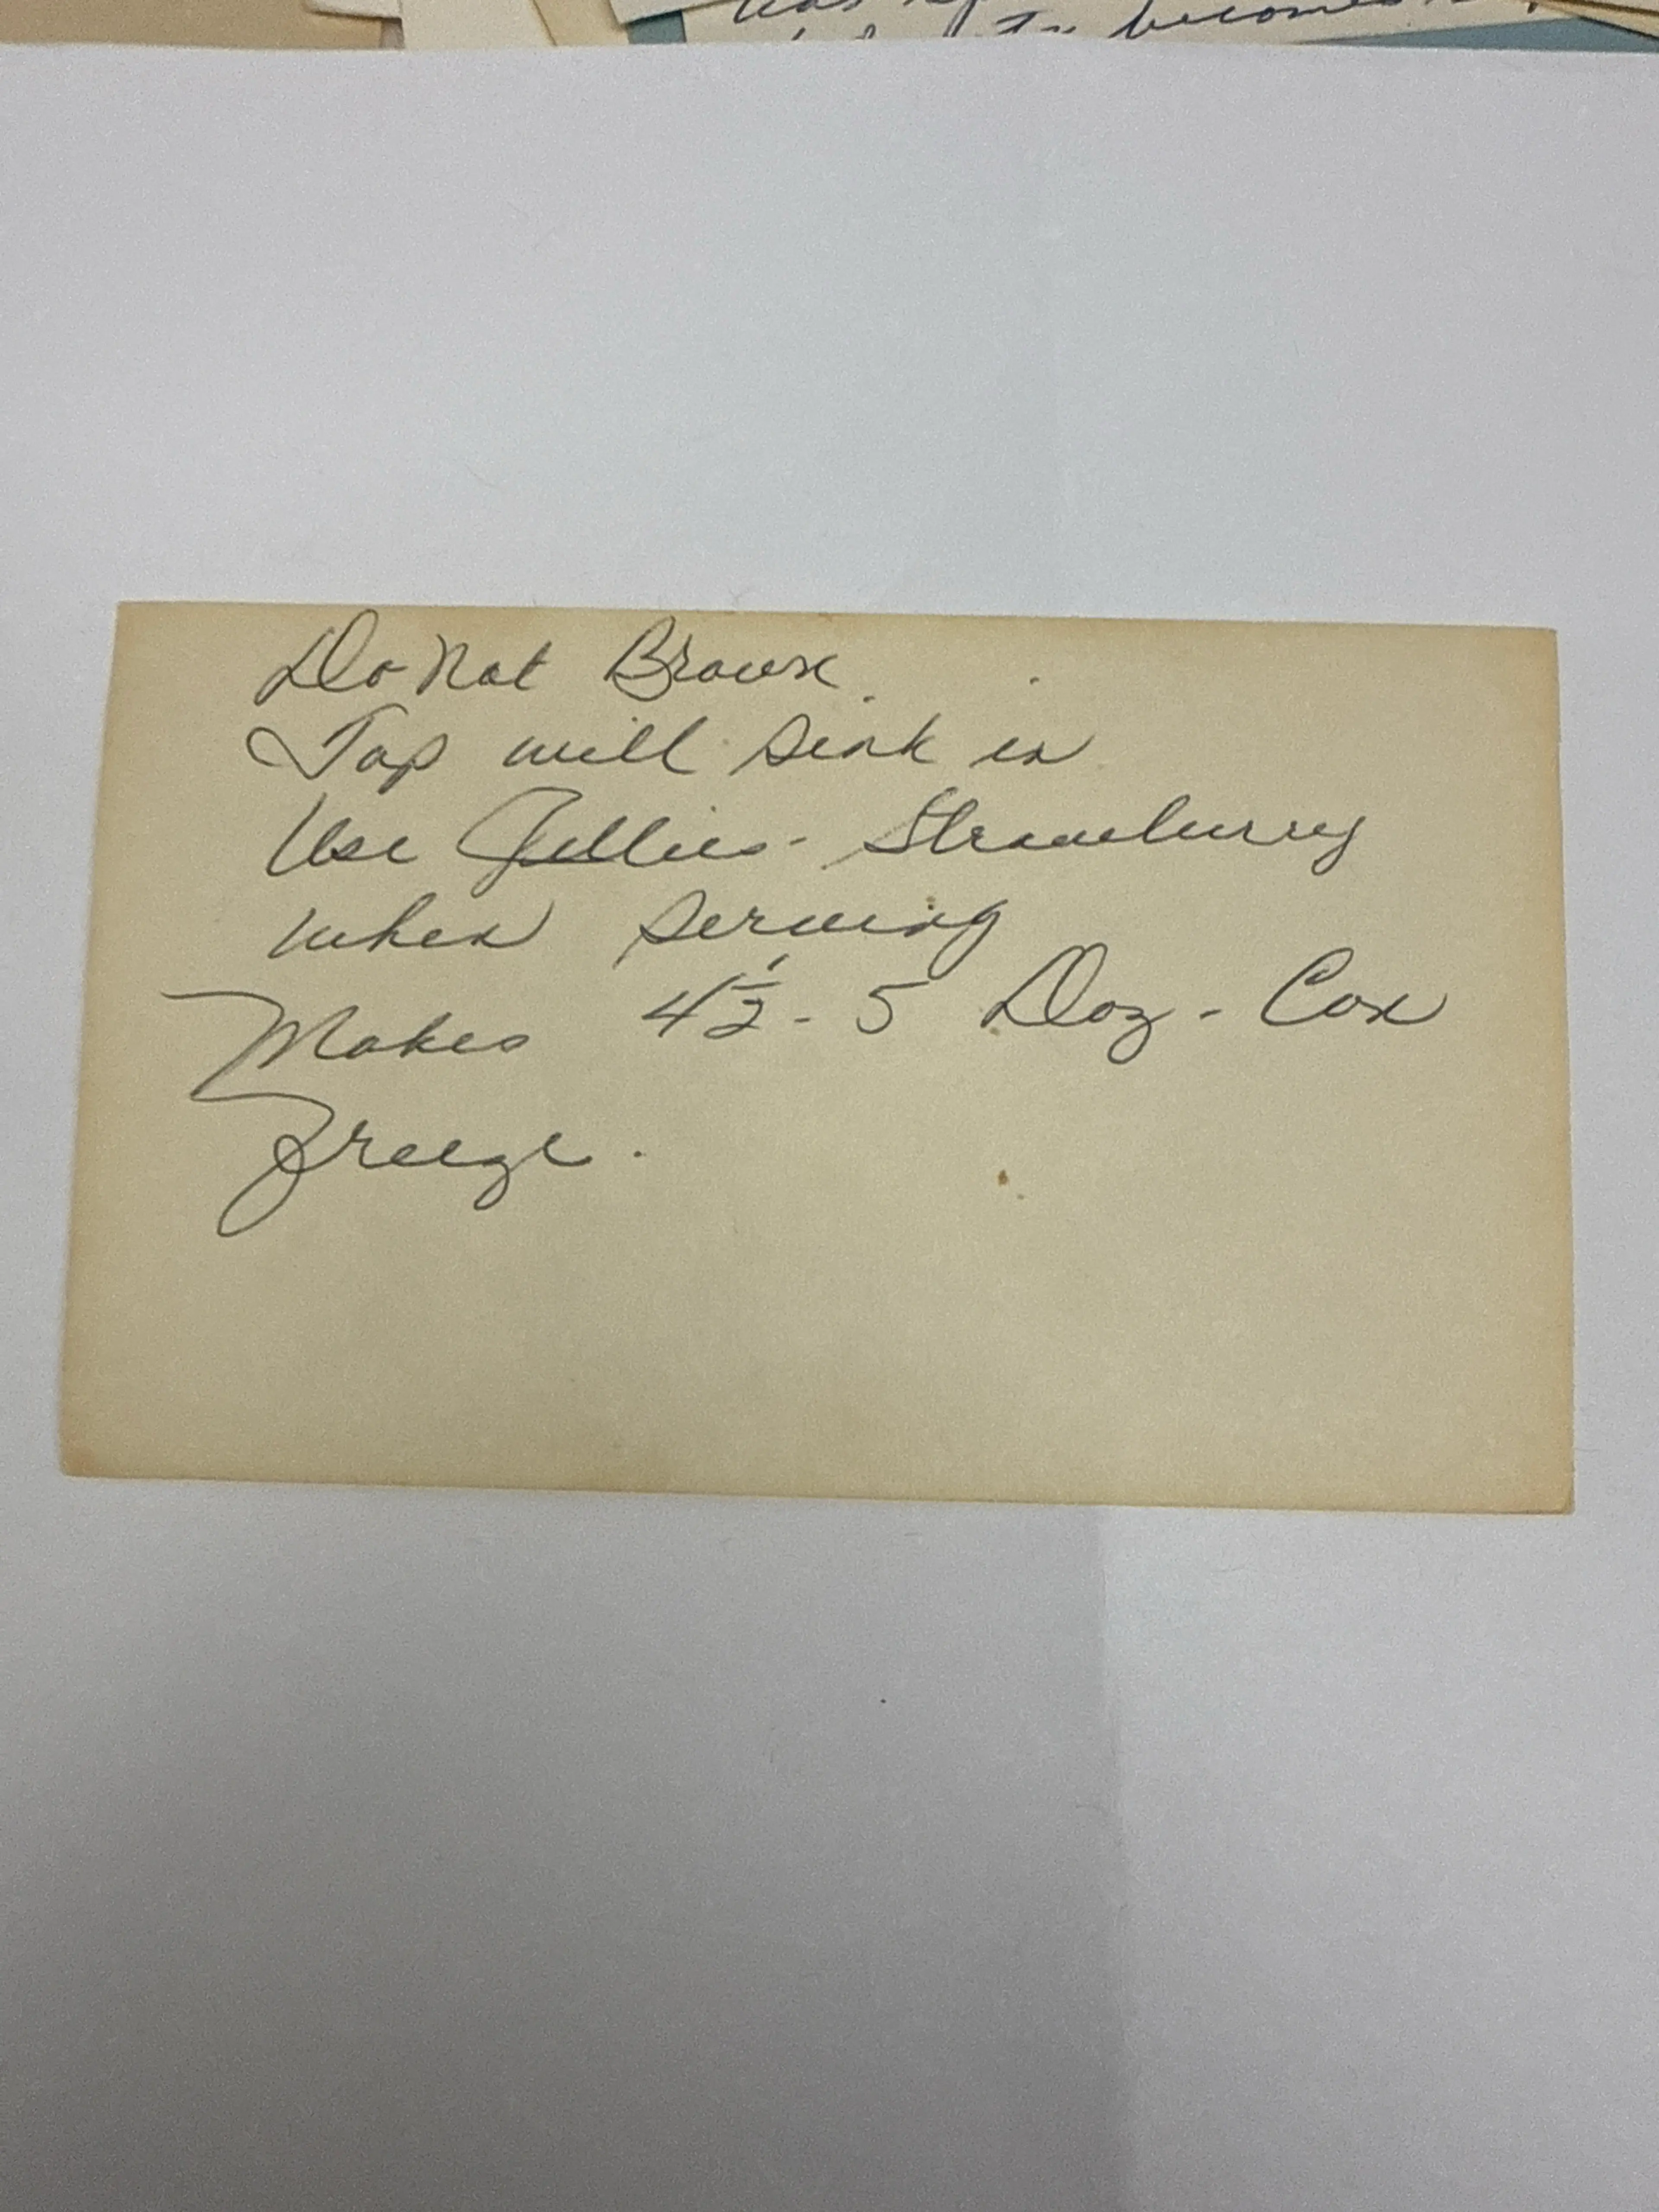 to becomes
Do Not Brown.
Top will sink in
Use Jellies - Strawberry
when serving
Makes 4½ - 5 Doz - Can
Freeze.